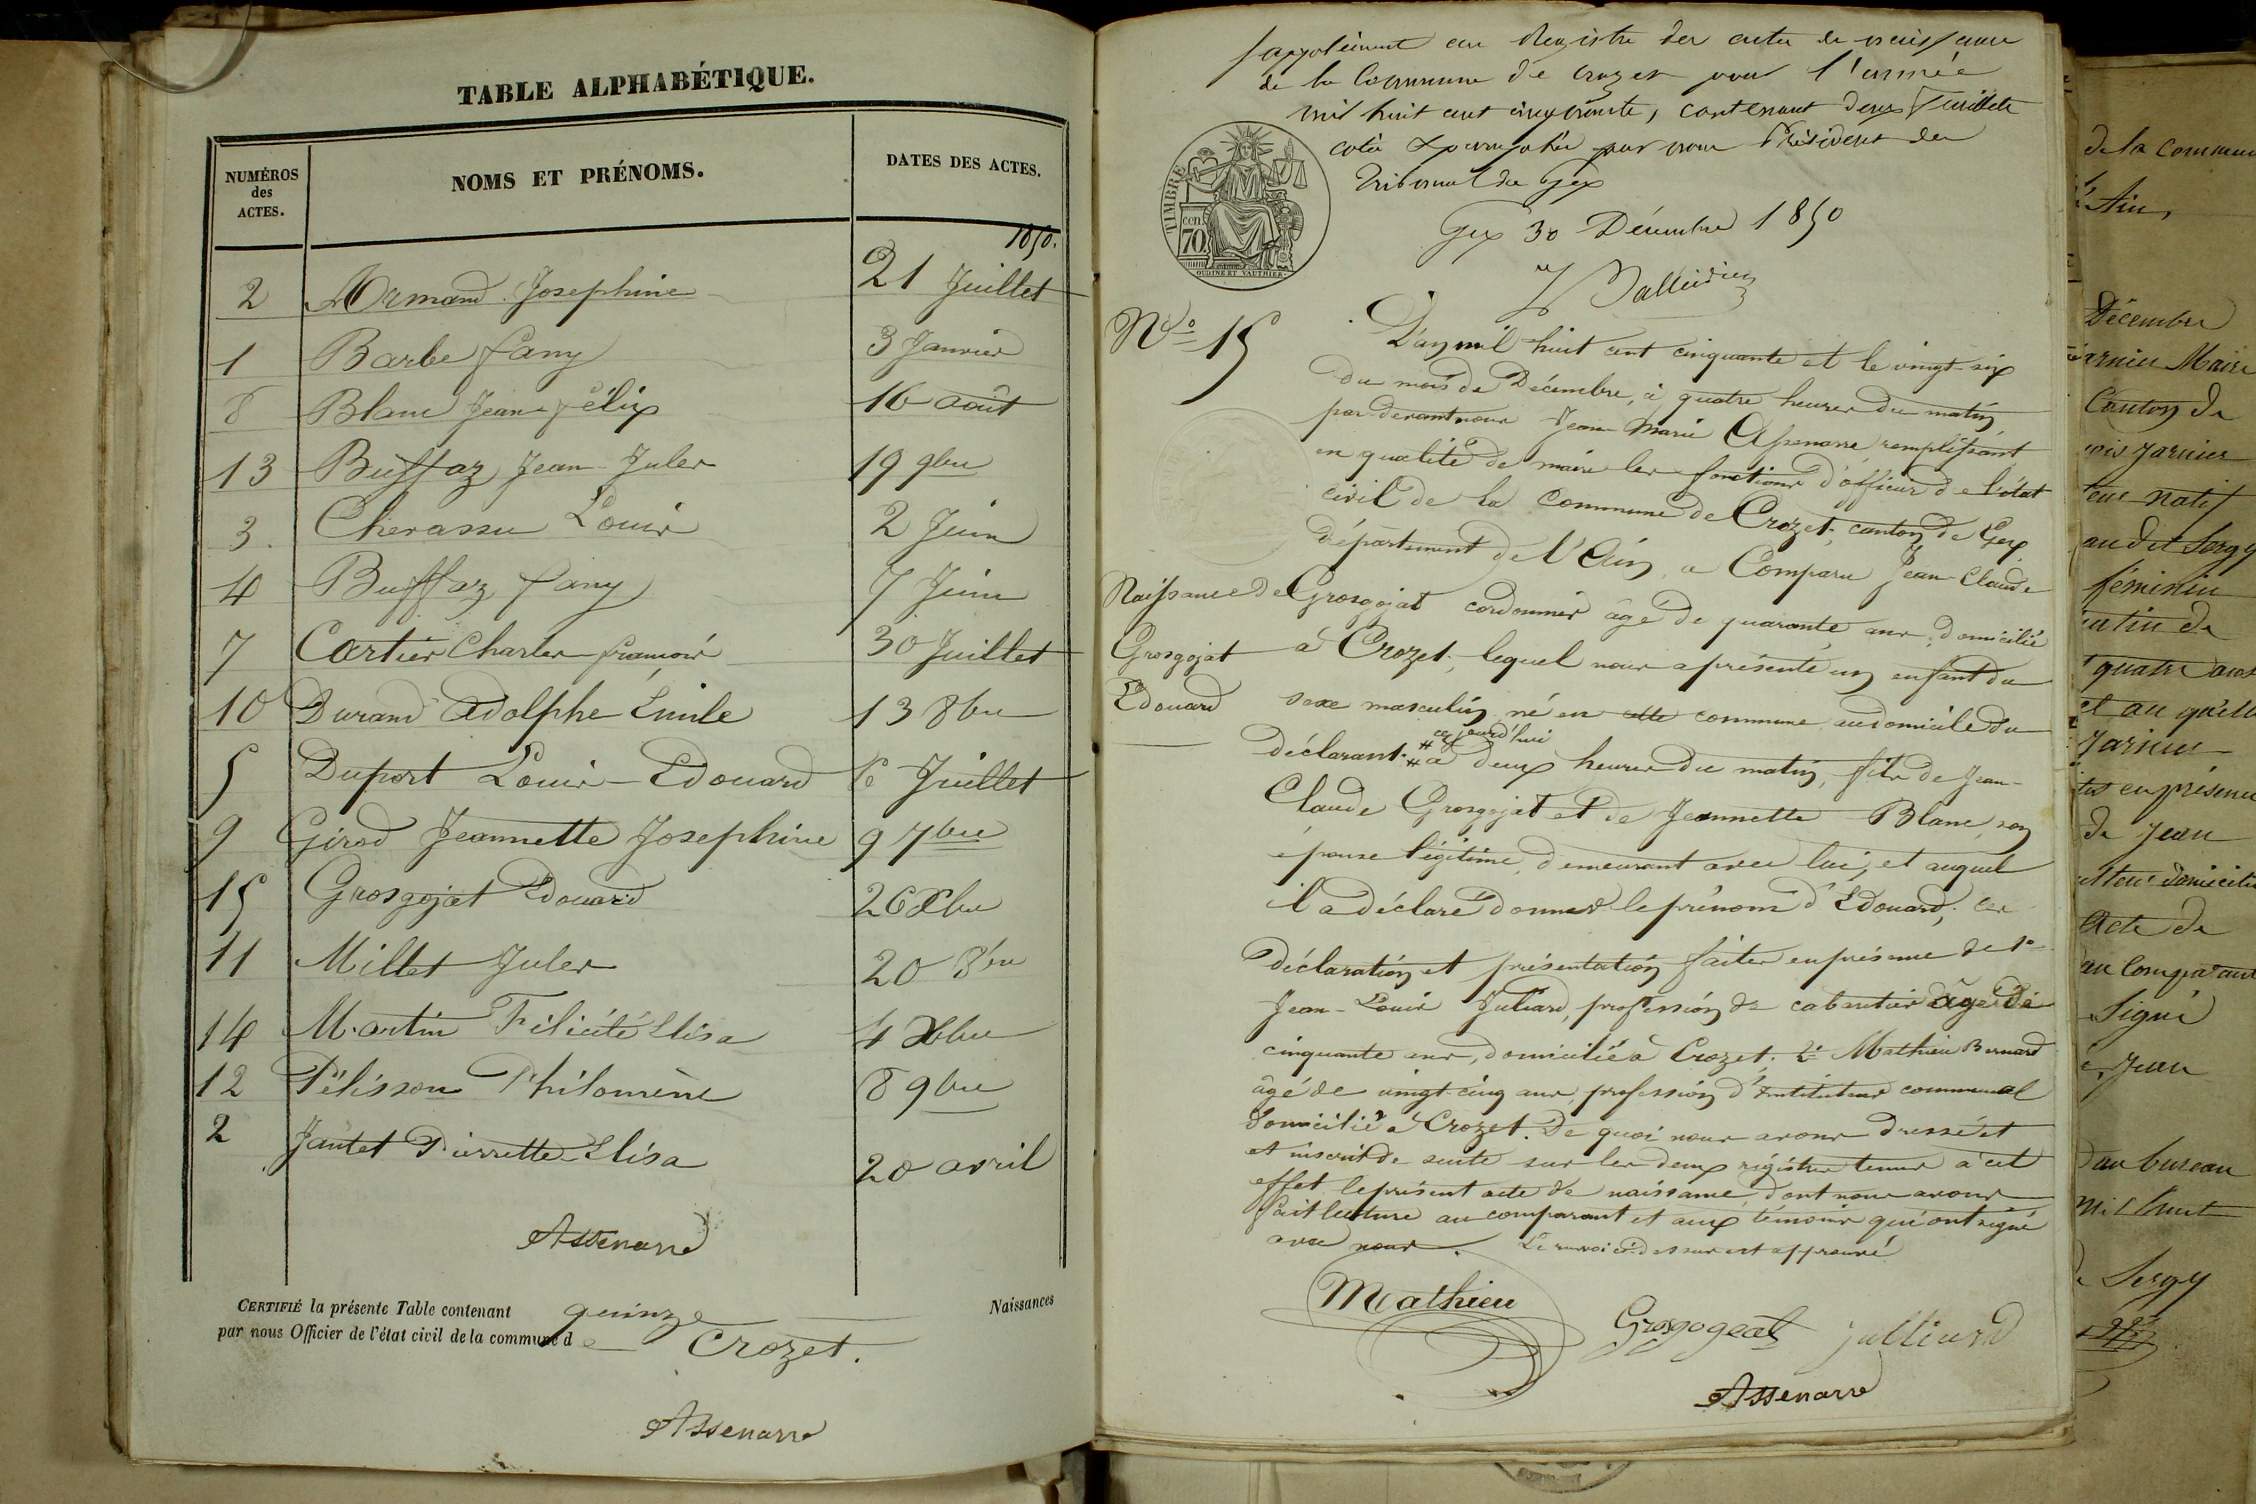 TABLE ALPHABÉTIQUE.
NUMÉROS des ACTES. NOMS ET PRÉNOMS. DATES DES ACTES.
1850.
2 Armand Josephine 21 Juillet
1 Barbe fany 3 Janvier
8 Blanc Jean-félix 16 août
13 Buffaz Jean-Jules 19 9bre
3. Cherassu Louis 2 Juin
4 Buffaz fany 7 Juin
7 Cartier Charles françois 30 Juillet
10 Durand Adolphe Émile 13 8bre
5 Duport Louis-Edouard 6 Juillet
9 Girod Jeannette Josephine 9 7bre
15 Grosgojat Edouard 26 Xbre
11 Millet Jules 20 8bre
14 Martin Félicité Elisa 4 Xbre
12 Pélisson Philomène 8 9bre
2 Jantet Pierrette-Elisa 20 avril
Assenare
CERTIFIÉ la présente Table contenant quinze Naissances
par nous Officier de l'état civil de la commune de Crozet.
Assenare
Supplément au Registre des actes de naissance
de la Commune de Crozet pour l'année
mil huit cent cinquante, contenant deux feuillets
cotés & paraphés par nous Président du
Tribunal de Gex
Gex 30 Décembre 1850
TIMBRE
70 cen
OUDINE ET VAUTHIER
No 15
L'an mil huit cent cinquante et le vingt-six
du mois de Décembre, à quatre heures du matin
par devant nous Jean-Marie Assenare remplissant
en qualité de maire les fonctions d'officier de l'état
civil de la Commune de Crozet, canton de Gex
département de l'Ain, a Comparu Jean-Claude
Naissance de
Grosgojat
Edouard
Grosgojat cordonnier âgé de quarante ans, domicilié
à Crozet, lequel nous a présenté un enfant du
sexe masculin, né en cette commune au domicile du
# aujourd'hui
déclarant # à deux heures du matin, fils de Jean-
Claude Grosgojat et de Jeannette Blanc, son
épouse légitime, demeurant avec lui, et auquel
il a déclaré donner le prénom d'Edouard, ces
déclaration et présentation faites en présence de 1°
Jean-Louis Julliard, profession de cabaretier âgé de
cinquante ans, domicilié à Crozet, 2° Mathieu Bernard
âgé de vingt-cinq ans, profession d'instituteur communal
domicilié à Crozet. De quoi nous avons dressé et
et inscrit de suite sur les deux régistres tenus à cet
effet le présent acte de naissance, dont nous avons
fait lecture au comparant et aux témoins qui ont signé
avec nous. Le renvoi ci-dessus est approuvé
Mathieu
Grosgogeat Julliard
Assenare
de la commune
l'Ain,
Décembre
Maire
Canton de
natif
au dit Sergy
féminin
matin de
quatre
en présence
de Jean
domicilié
Acte de
au comparant
Signé
Jean
au bureau
Mil huit
Sergy